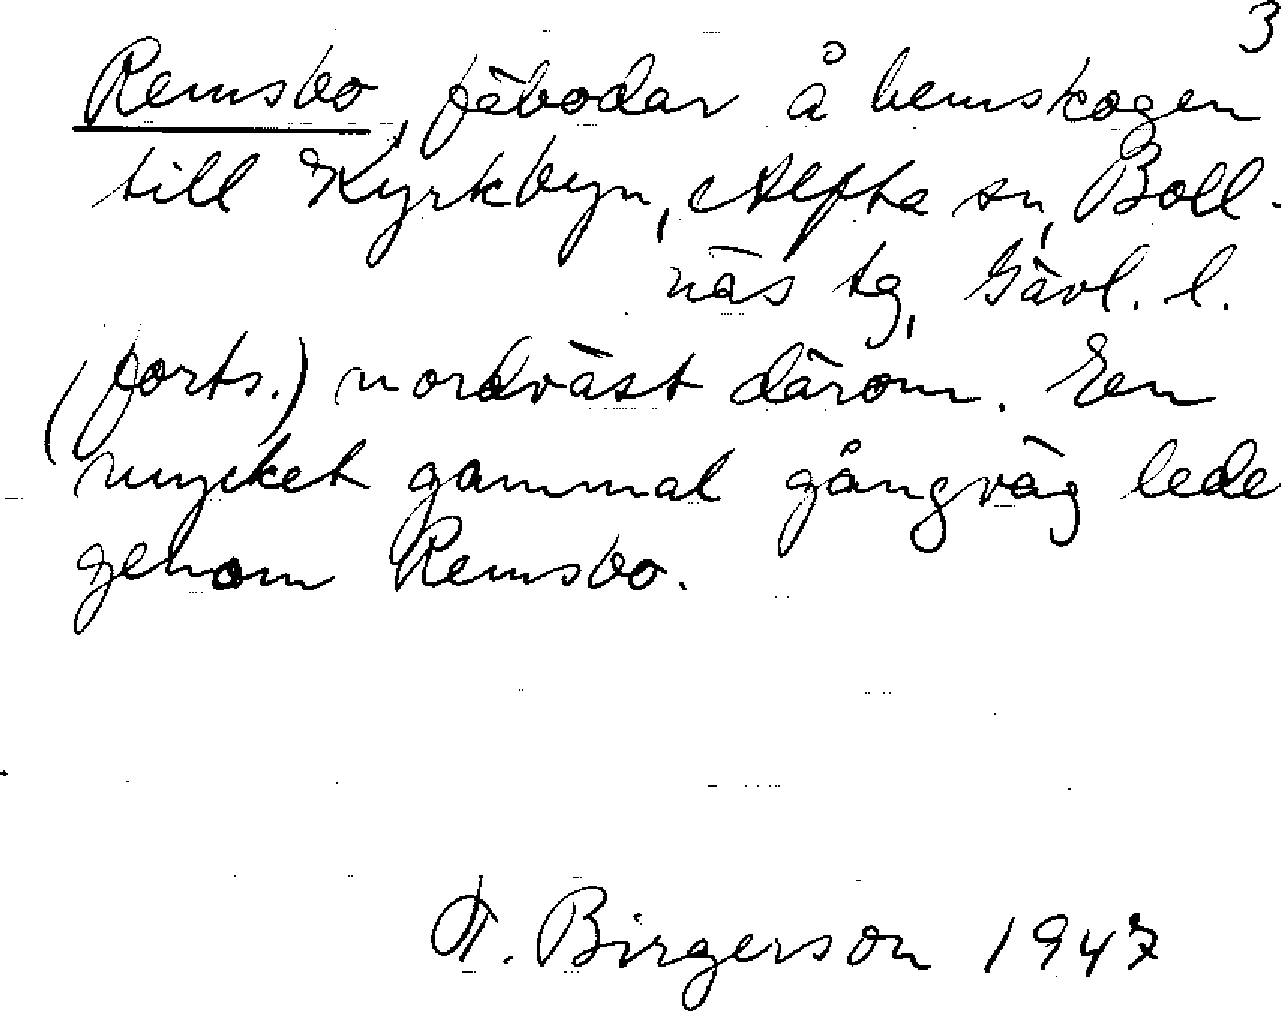 3
Remsbo, fäbodar å hemskogen
till Kyrkbyn, Alfta sn, Boll-
näs tg, Gävl. l.
(forts.) nordväst därom. En
mycket gammal gångväg lede
genom Remsbo.
F. Birgerson 1947